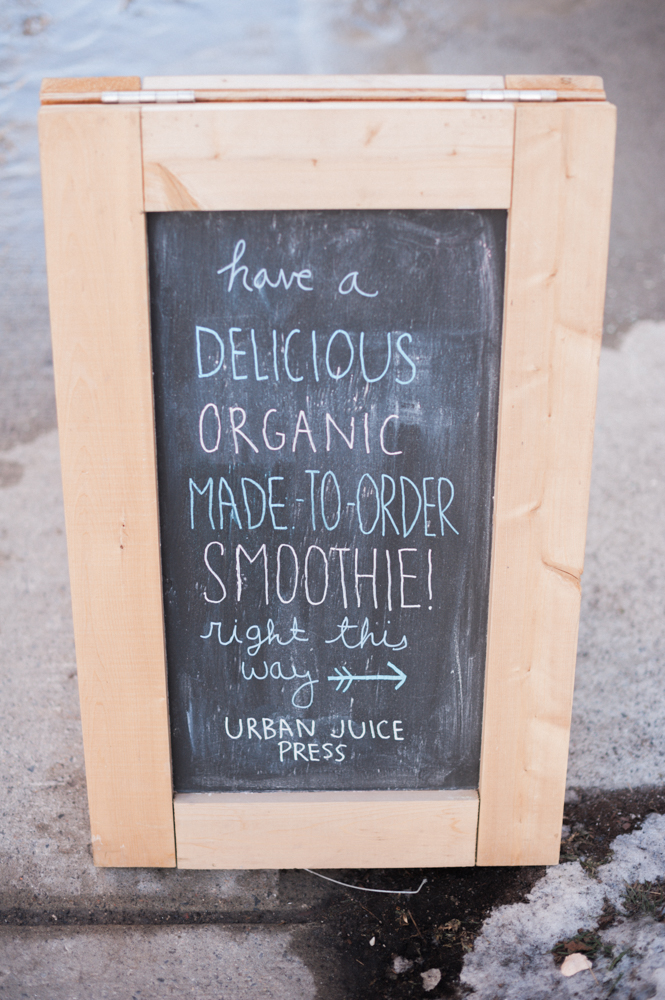 have a
DELICIOUS
ORGANIC
MADE-TO-ORDER
SMOOTHIE!
right this
way
URBAN JUICE
PRESS